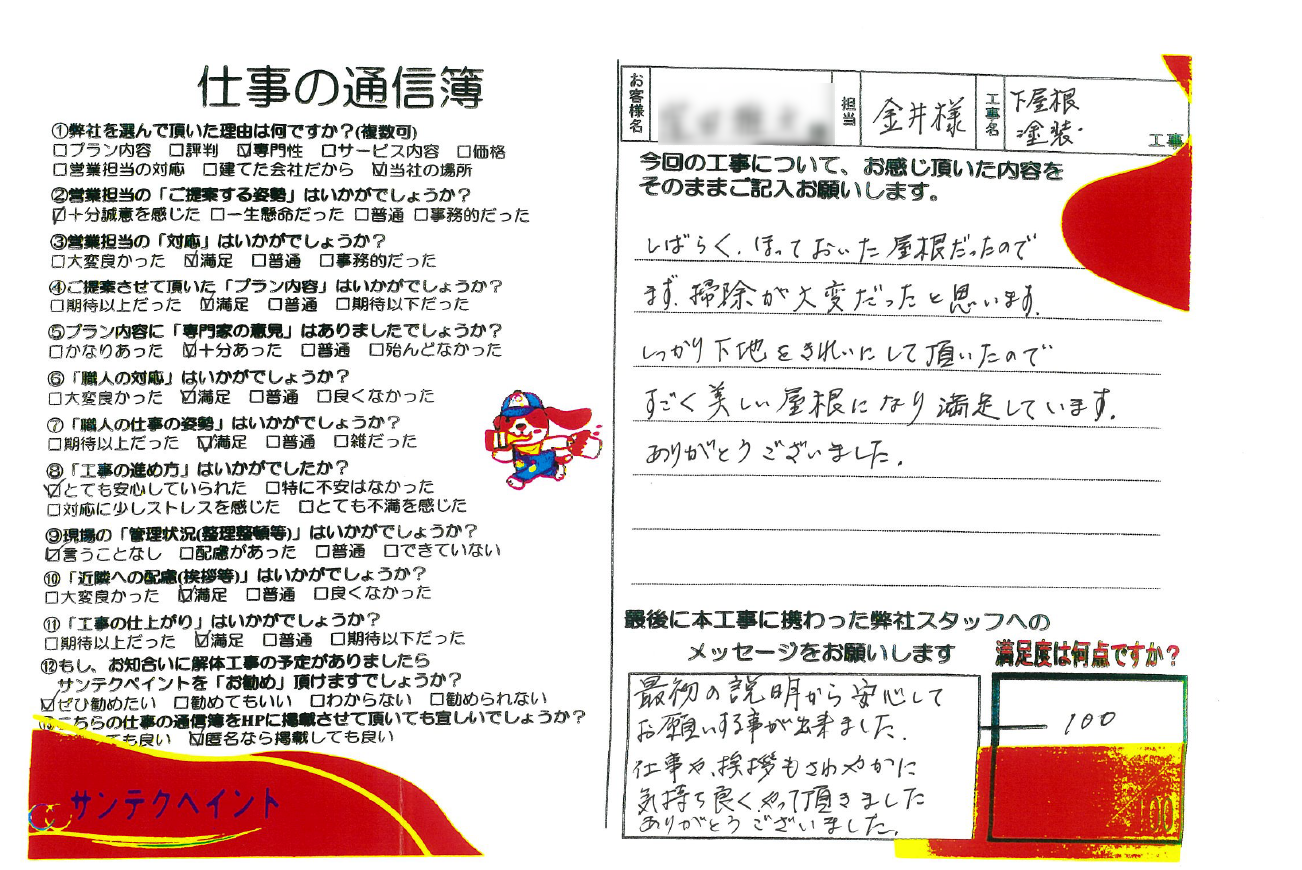 仕事の通信簿
①弊社を選んで頂いた理由は何ですか?(複数可)
□プラン内容 □評判 ☑専門性 □サービス内容 □価格
□営業担当の対応 □建てた会社だから ☑当社の場所
②営業担当の「ご提案する姿勢」はいかがでしょうか?
☑十分誠意を感じた □一生懸命だった □普通 □事務的だった
③営業担当の「対応」はいかがでしょうか?
□大変良かった ☑満足 □普通 □事務的だった
④ご提案させて頂いた「プラン内容」はいかがでしょうか?
□期待以上だった ☑満足 □普通 □期待以下だった
⑤プラン内容に「専門家の意見」はありましたでしょうか?
□かなりあった ☑十分あった □普通 □殆んどなかった
⑥「職人の対応」はいかがでしょうか?
□大変良かった ☑満足 □普通 □良くなかった
⑦「職人の仕事の姿勢」はいかがでしょうか?
□期待以上だった ☑満足 □普通 □雑だった
⑧「工事の進め方」はいかがでしたか?
☑とても安心していられた □特に不安はなかった
□対応に少しストレスを感じた □とても不満を感じた
⑨現場の「管理状況(整理整頓等)」はいかがでしょうか?
☑言うことなし □配慮があった □普通 □できていない
⑩「近隣への配慮(挨拶等)」はいかがでしょうか?
□大変良かった ☑満足 □普通 □良くなかった
⑪「工事の仕上がり」はいかがでしょうか?
□期待以上だった ☑満足 □普通 □期待以下だった
⑫もし、お知合いに解体工事の予定がありましたら
サンテクペイントを「お勧め」頂けますでしょうか?
☑ぜひ勧めたい □勧めてもいい □わからない □勧められない
こちらの仕事の通信簿をHPに掲載させて頂いても宜しいでしょうか?
ても良い ☑匿名なら掲載しても良い
サンテクペイント
お客様名
担当 金井様
工事名 下屋根
塗装 工事
今回の工事について、お感じ頂いた内容を
そのままご記入お願いします。
しばらく、ほっておいた屋根だったので
まず、掃除が大変だったと思います。
しっかり下地をきれいにして頂いたので
すごく美しい屋根になり満足しています。
ありがとうございました。
最後に本工事に携わった弊社スタッフへの
メッセージをお願いします
最初の説明から安心して
お願いする事が出来ました。
仕事や、挨拶もさわやかに
気持ち良くやって頂きました
ありがとうございました。
満足度は何点ですか?
100
/100